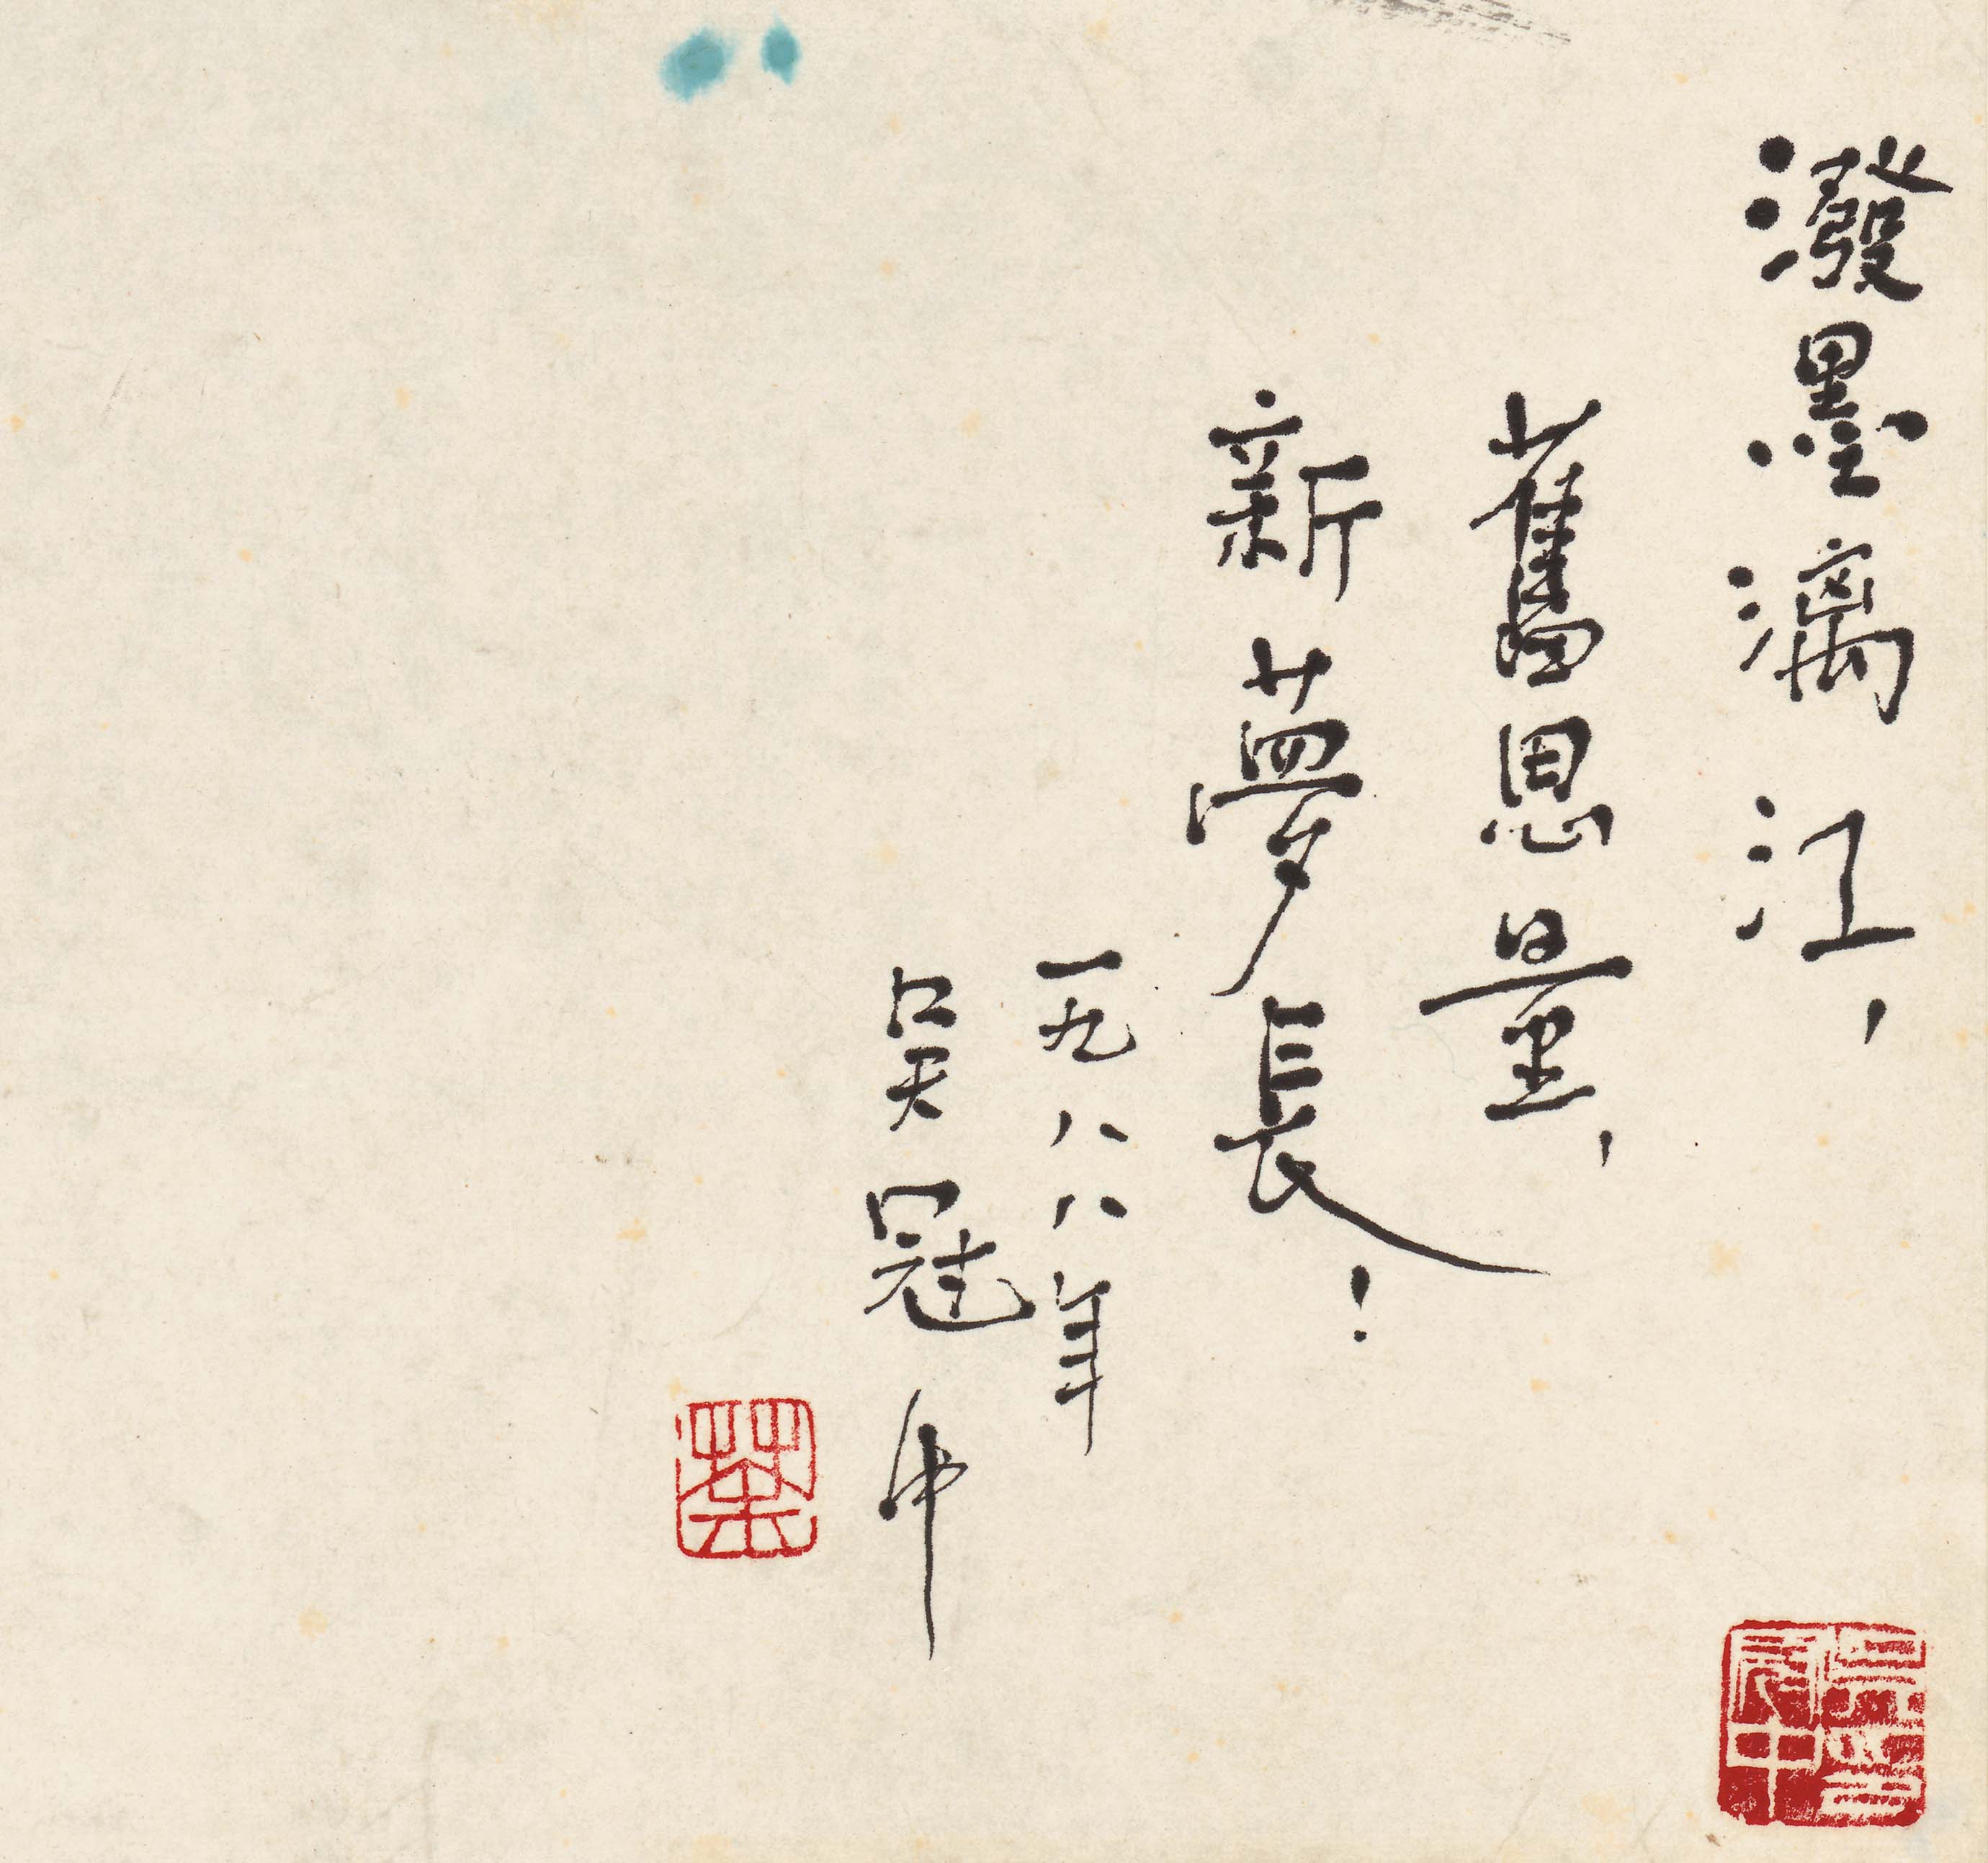 潑墨漓江，
舊思量，
新夢長！
一九八八年
吳冠中
荼
吳冠中印